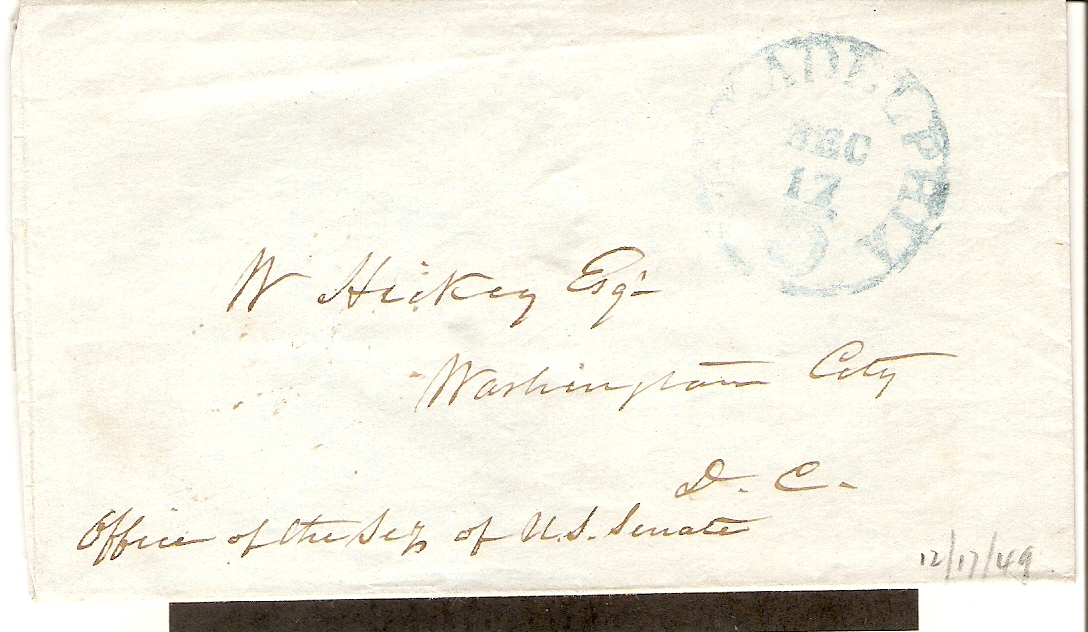 ADELPHIA
DEC
17
5
W Hickey Esqr
Washington City
D. C.
Office of the Secy of U.S. Senate
12/17/49